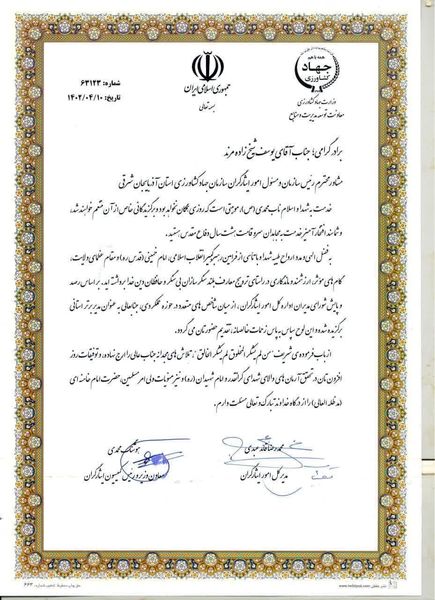 همه با هم
جهاد
کشاورزی
وزارت جهاد کشاورزی
معاونت توسعه مدیریت و منابع
جمهوری اسلامی ایران
بسمه تعالی
شماره: ۶۳۱۲۳
تاریخ: ۱۴۰۲/۰۴/۱۰
برادر گرامی؛ جناب آقای یوسف شیخ زاده مرند
مشاور محترم رئیس سازمان و مسئول امور ایثارگران سازمان جهاد کشاورزی استان آذربایجان شرقی
خدمت به شهدا و اسلام ناب محمدی (ص)، موجی است که روزی همگان نخواهد بود و برگزیدگانی خاص از آن متنعم خواهند شد،
و شمانند افتخار آمیز خدمت به مجاهدان سرو قامت هشت سال دفاع مقدس هستید.
به فضل الهی و مدد ارواح طیبه شهدا و با تاسی از فرامین رهبر کبیر انقلاب اسلامی، امام خمینی (قدس ره) و مقام عظمای ولایت،
گام های موثر، ارزشمند و ماندگاری در راستای ترویج معارف بلند سنگرسازان بی سنگر و حافظان دین خدا برداشته اید. بر اساس رصد
و پایش شورای مدیران اداره کل امور ایثارگران، از میان شاخص های متعدد در حوزه عملکردی، جنابعالی به عنوان مدیر برتر استانی
برگزیده شده و این لوح سپاس به پاس زحمات خالصانه، تقدیم حضورتان می گردد.
از باب فرموده ی شریف: "من لم یشکر المخلوق لم یشکر الخالق"، تلاش های مجدانه جناب عالی را ارج نهاده، و توفیقات روز
افزون تان در تحقق آرمان های والای شهدای گرانقدر و امام شهیدان (ره) و نیز منویات ولی امر مسلمین، حضرت امام خامنه ای
(مدظله العالی) را از درگاه خداوند تبارک و تعالی مسئلت دارم.
محمدرضا قائد عبدی
مدیر کل امور ایثارگران
هوشنگ محمدی
معاون وزیر و رئیس کمیسیون ایثارگران